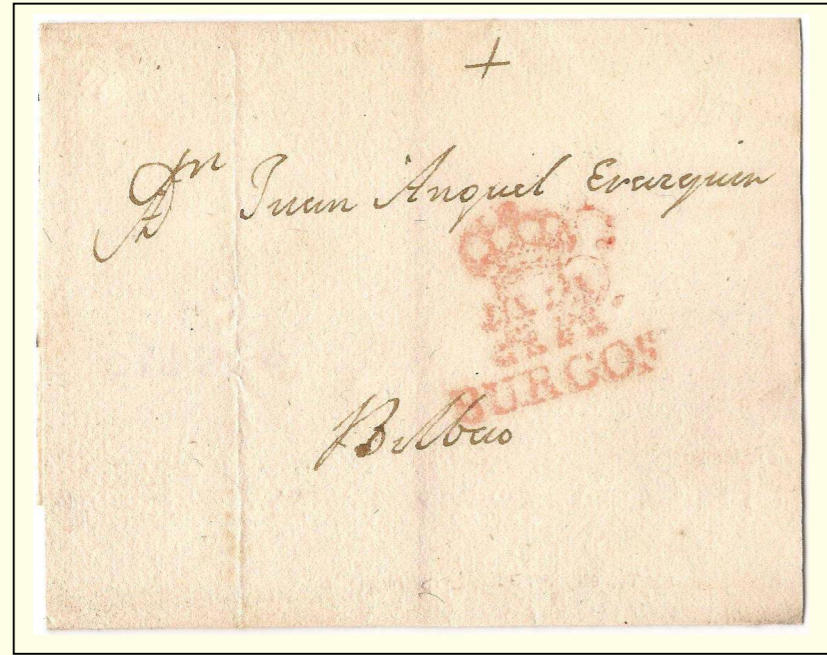 +
A Dn Juan Anguel Erarquin
BURGOS
Bilbao